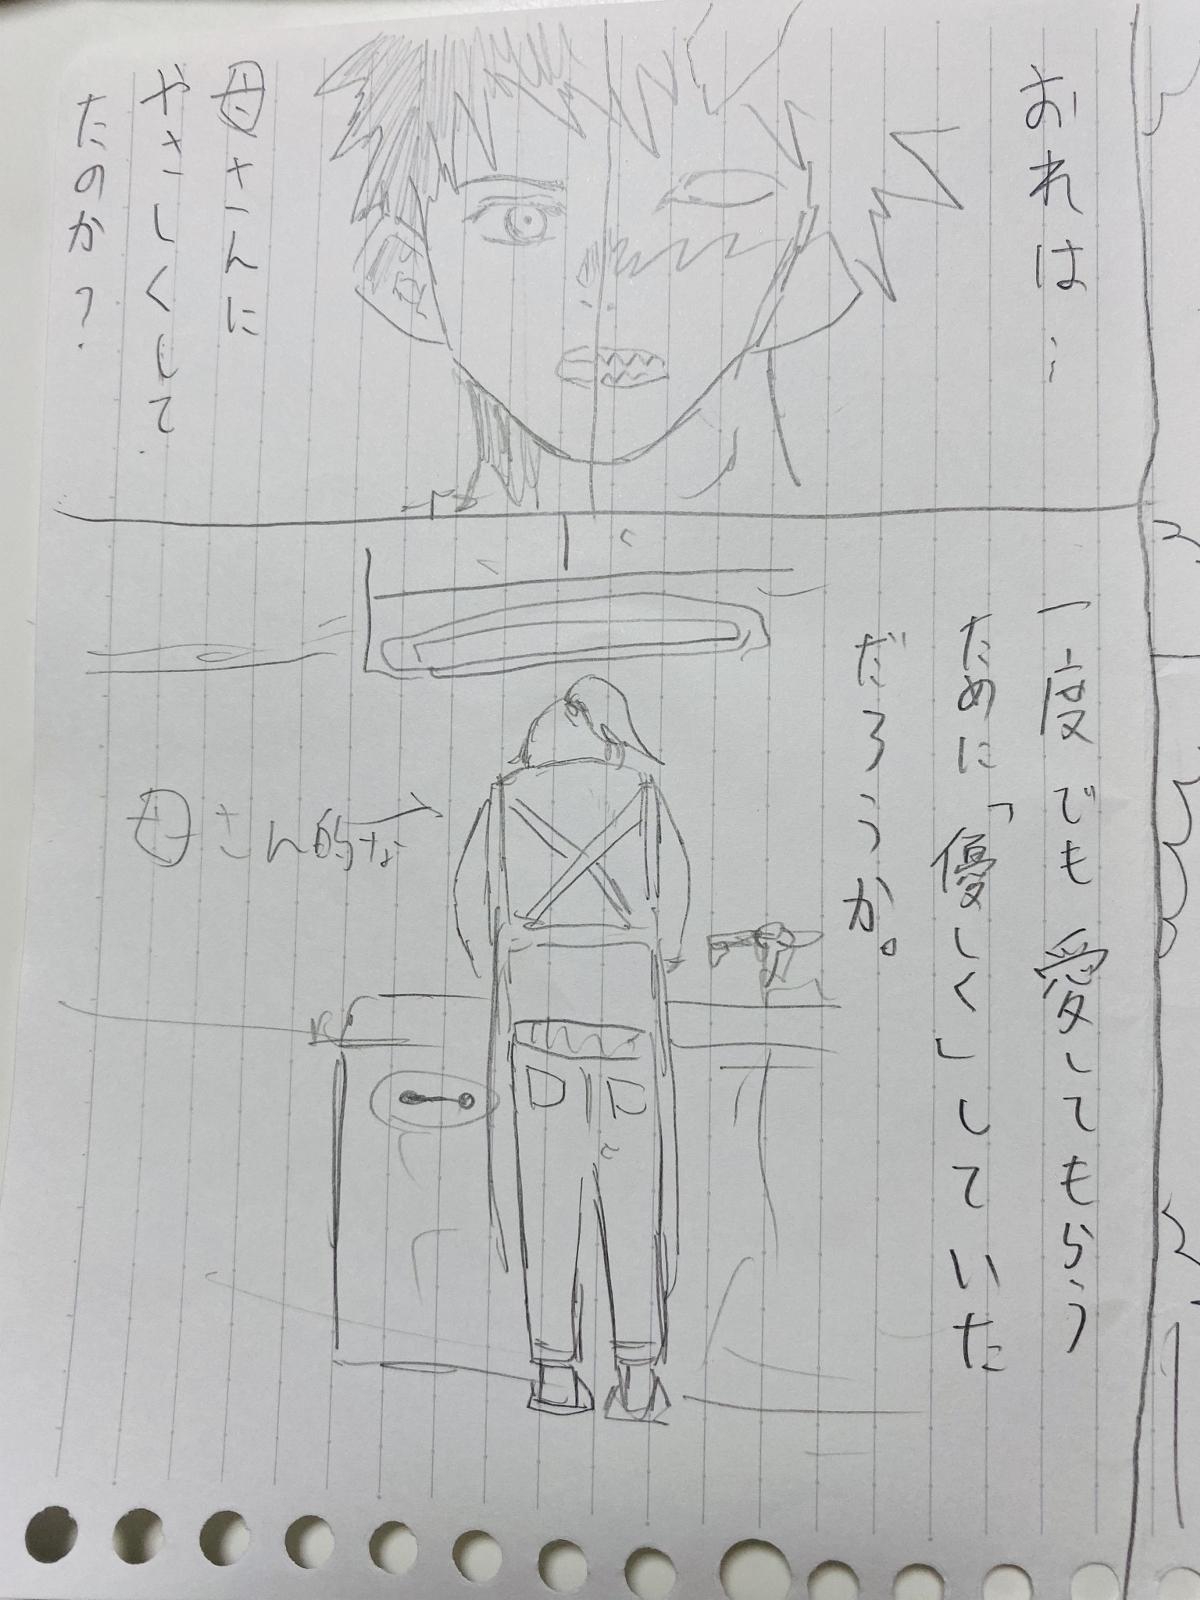 おれは…
母さんに
やさしくして
たのか?
一度でも愛してもらう
ために「優しく」していた
だろうか。
母さん的な